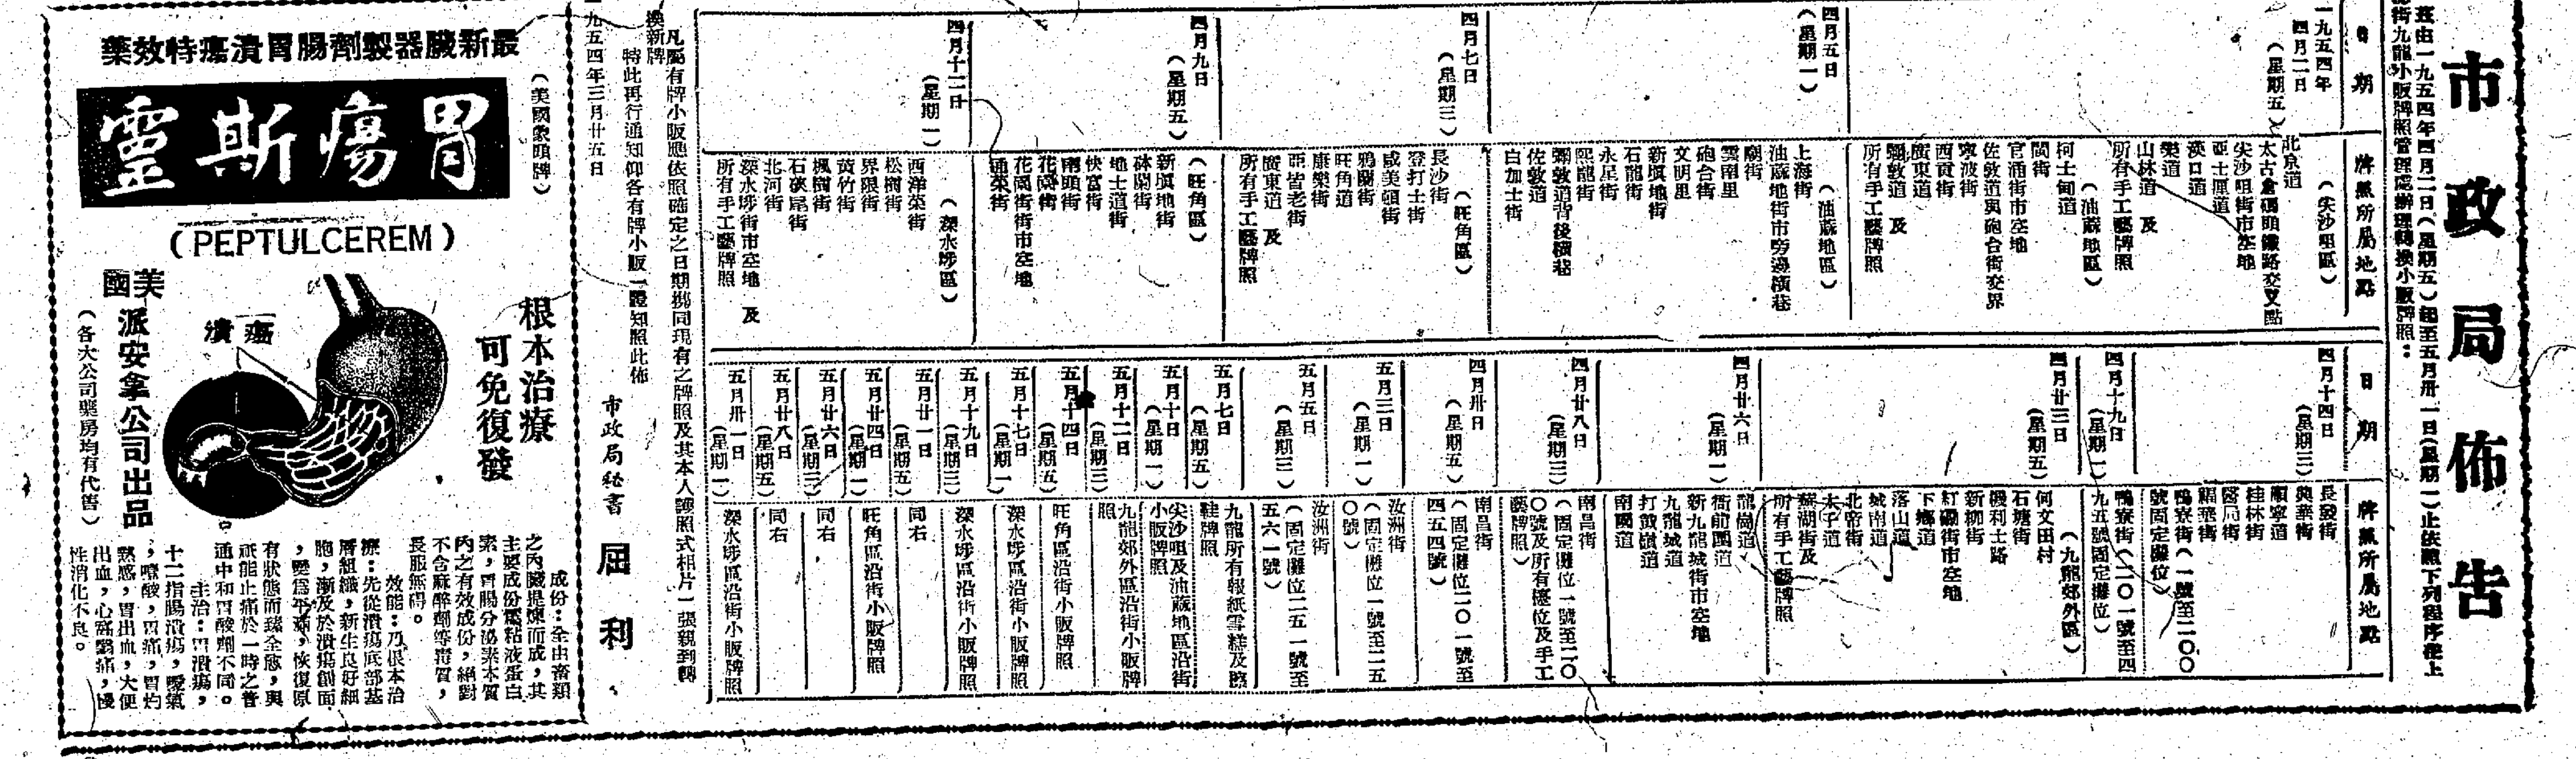 市政局佈告
茲由一九五四年四月二日(星期五)起至五月卅一日(星期一)止依照下列程序在上
街九龍小販牌照管理處辦理轉換小販牌照：
日期
牌照所屬地點
一九五四年
四月二日
(星期五)
(尖沙咀區)
北京道
太古倉碼頭鐵路交叉點
尖沙咀街市空地
亞士厘道
漢口道
樂道
山林道 及
所有手工藝牌照
(油蔴地區)
柯士甸道
閩街
官涌街市空地
佐敦道與砲台街交界
寧波街
西貢街
廣東道
彌敦道 及
所有手工藝牌照
四月五日
(星期一)
(油蔴地區)
上海街
油蔴地街市旁邊橫巷
廟街
雲南里
砲台街
文明里
新填地街
石龍街
永星街
熙龍街
彌敦道背後橫巷
佐敦道
白加士街
四月七日
(星期三)
(旺角區)
長沙街
登打士街
咸美頓街
鴉蘭街
旺角道
康樂街
亞皆老街
廣東道 及
所有手工藝牌照
四月九日
(星期五)
(旺角區)
新填地街
砵蘭街
地士道街
快富街
南頭街
花園街
花園街街市空地
通菜街
四月十二日
(星期一)
(深水埗區)
西洋菜街
松樹街
界限街
黃竹街
楓樹街
石硤尾街
北河街
深水埗街市空地 及
所有手工藝牌照
日期
牌照所屬地點
四月十四日
(星期三)
長發街
興華街
順寧道
桂林街
醫局街
福華街
鴨寮街(一號至二〇〇
號固定攤位)
四月十九日
(星期一)
鴨寮街(二〇一號至四
九五號固定攤位)
四月廿三日
(星期五)
(九龍郊外區)
何文田村
石塘街
機利士路
新柳街
紅磡街市空地
下鄉道
落山道
城南道
北帝街
太子道
蕪湖街及
所有手工藝牌照
四月廿六日
(星期一)
龍崗道
衙前圍道
新九龍城街市空地
九龍城道
打鼓嶺道
南園道
四月廿八日
(星期三)
南昌街
(固定攤位一號至二〇
〇號及所有檯位及手工
藝牌照)
四月卅日
(星期五)
南昌街
(固定攤位二〇一號至
四五四號)
五月三日
(星期一)
汝洲街
(固定攤位一號至二五
〇號)
五月五日
(星期三)
汝洲街
(固定攤位二五一號至
五六一號)
五月七日
(星期五)
九龍所有報紙雪糕及擦
鞋牌照
五月十日
(星期一)
尖沙咀及油蔴地區沿街
小販牌照
五月十二日
(星期三)
九龍郊外區沿街小販牌
照
五月十四日
(星期五)
旺角區沿街小販牌照
五月十七日
(星期一)
深水埗區沿街小販牌照
五月十九日
(星期三)
深水埗區沿街小販牌照
五月廿一日
(星期五)
同右
五月廿四日
(星期一)
旺角區沿街小販牌照
五月廿六日
(星期三)
同右
五月廿八日
(星期五)
同右
五月卅一日
(星期一)
深水埗區沿街小販牌照
凡屬有牌小販應依照確定之日期携同現有之牌照及其本人護照式相片一張親到轉
換新牌
特此再行通知仰各有牌小販一體知照此佈
市政局秘書 屈利
一九五四年三月廿五日
最新臟器製劑腸胃潰瘍特效藥
(美國象頭牌)
胃瘍斯靈
(PEPTULCEREM)
根本治療
可免復發
潰瘍
美國派安拿公司出品
(各大公司藥房均有代售)
成份：全由畜類
之內臟提煉而成，其
主要成份屬粘液蛋白
素，胃腸分泌素本質
內之有效成份，絕對
不含麻醉劑等毒質，
長服無碍。
效能：乃根本治
療：先從潰瘍底部基
層組織，新生良好細
胞，漸及於潰瘍創面
，變為平滿，恢復原
有狀態而臻全愈，與
祇能止痛於一時之普
通中和胃酸劑不同。
主治：胃潰瘍，
十二指腸潰瘍，噯氣
，嘈酸，胃痛，胃灼
熱感，胃出血，大便
出血，心窩翳痛，慢
性消化不良。